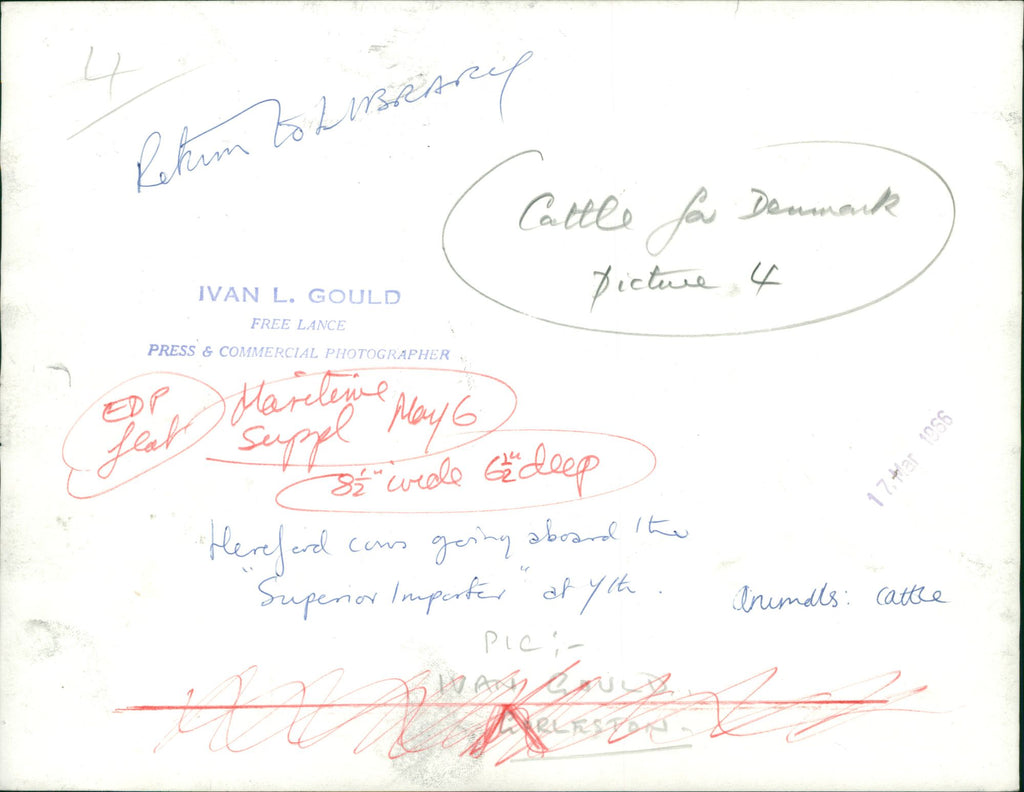 4
Return to LIBRARY
Cattle for Denmark
Picture 4
IVAN L. GOULD
FREE LANCE
PRESS & COMMERCIAL PHOTOGRAPHER
EDP
feat
Maritime
Suppl May 6
8½" wide 6½" deep
17. Mar 1966
Hereford cows going aboard the
"Superior Importer" at Y/th.
Animals: cattle
PIC:-
IVAN GOULD.
GORLESTON-